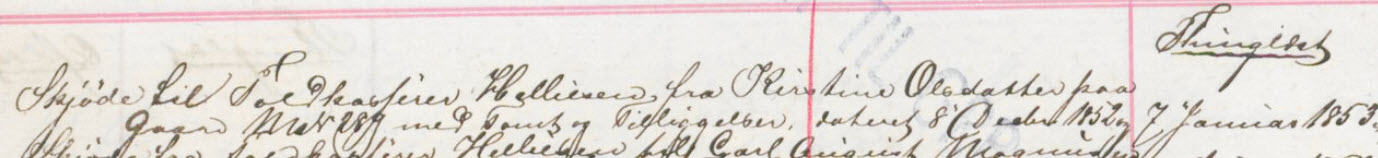 Thinglæst
Skjøde til Toldkasserer Helliesen fra Kirstine Olsdatter paa
Gaard Matr 289 med Tomt og Tilliggelser, dateret 8 Decbr 1852 og 7 Januar 1853.
Skjøde fra Toldkasserer Helliesen til Carl August Magnus